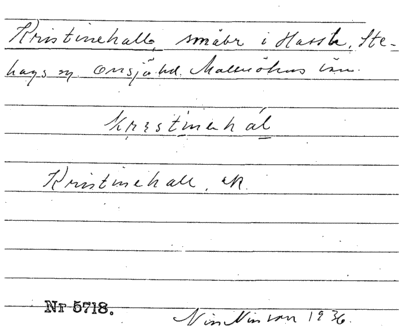 Kristinehall, småbr i Hassle, Ste-
hags sn Onsjö hd. Malmöhus län.
krestinehál
Kristinehall, ek.
Nr 5718.
Nils Nilsson 1936.